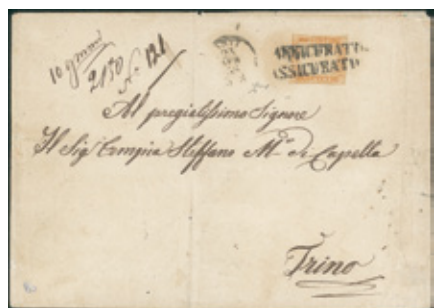 10 grmi
2130 N. 121
ASSICURATO
ASSICURATO
Al pregiatissimo Signore
Il Sig Steffano M.o di Capella
Trino